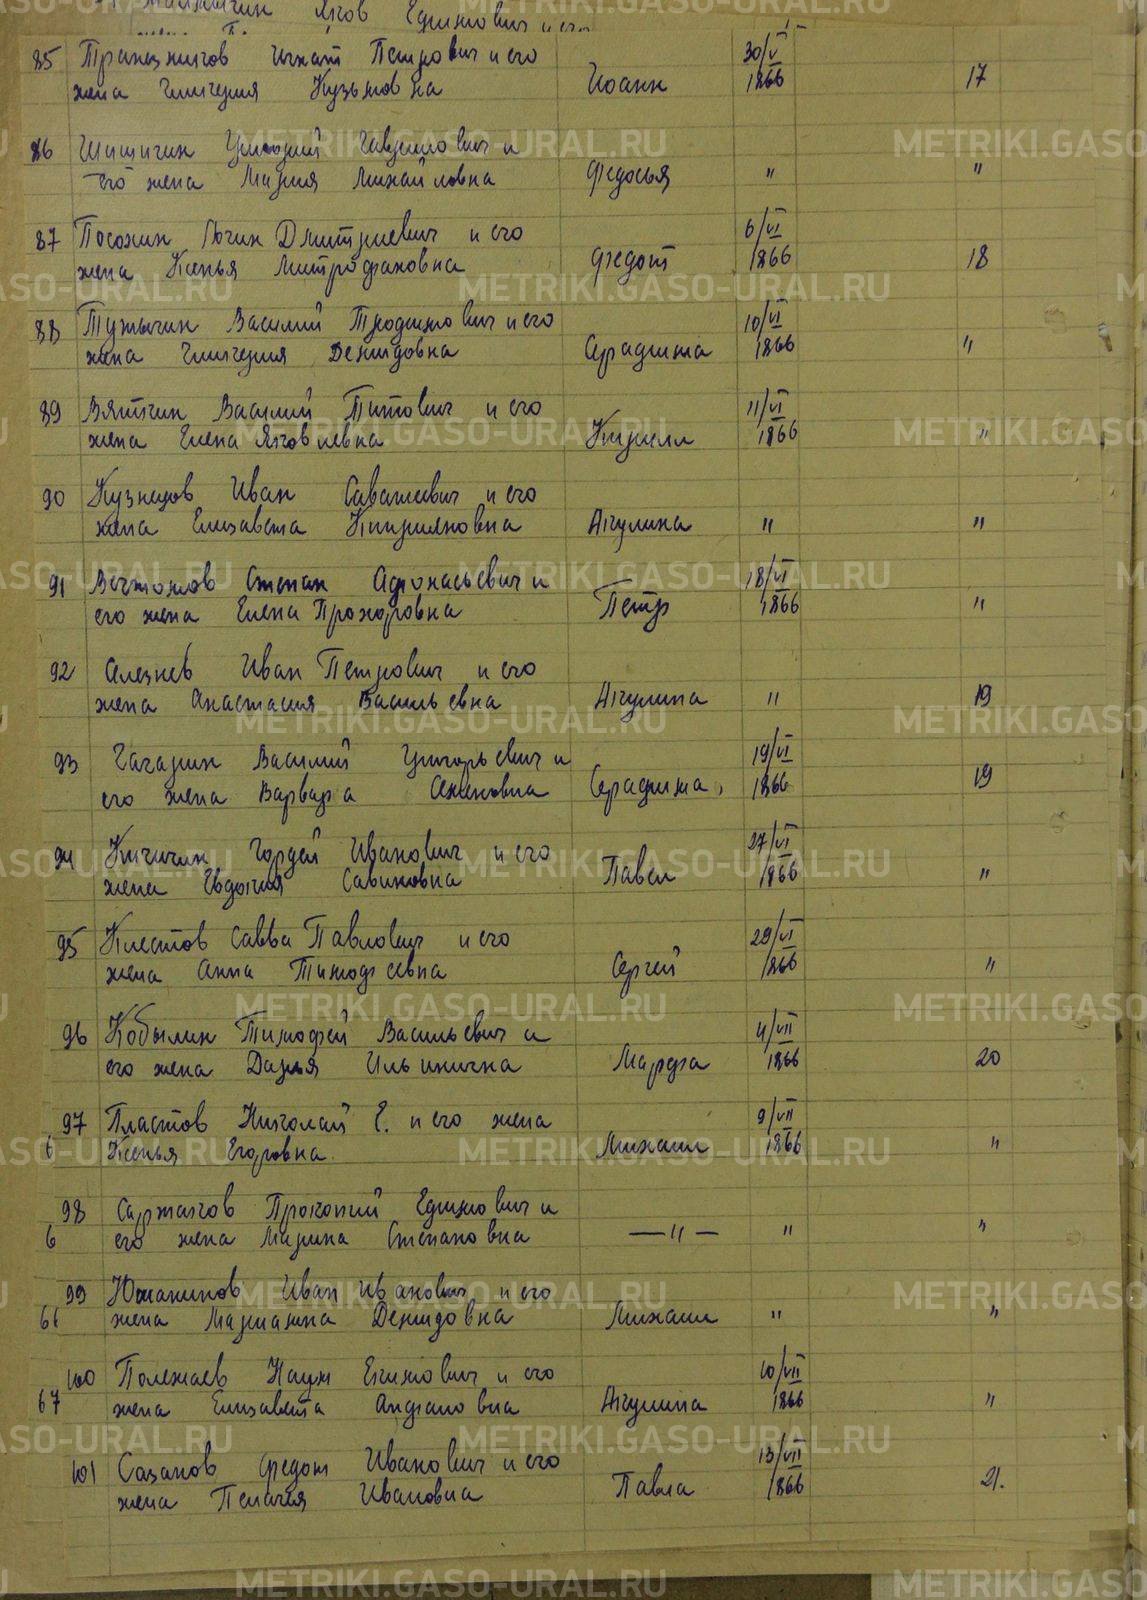 Яков Ефимович и его
85 Игнат Петрович и его 30/V
жена Гликерия Кузьмовна Иоанн 1866 17
86 Шишигин Григорий и
его жена Мария Михайловна Федосья " "
87 Посохин Логин Дмитриевич и его 6/VI
жена Ксенья Митрофановна Федот 1866 18
88 Василий Трофимович и его 10/VI
жена Гликерия Демидовна Серафима 1866 "
89 Вяткин Василий Титович и его 11/VI
жена Елена Яковлевна Кирилл 1866 "
90 Кузнецов Иван Саватеевич и его
жена Елизавета Киприяновна Акулина " "
91 Степан Афонасьевич и 18/VI
его жена Елена Прохоровна Петр 1866 "
92 Селезнев Иван Петрович и его
жена Анастасия Васильевна Акулина " 19
93 Гагарин Василий Григорьевич и 19/VI
его жена Варвара Семеновна Серафима, 1866 19
94 Кичигин Гордей Иванович и его 27/VI
жена Евдокия Савиновна Павел 1866 "
95 Клестов Савва Павлович и его 29/VI
жена Анна Тимофеевна Сергей 1866 "
96 Кобылин Тимофей Васильевич и 4/VII
его жена Дарья Ильинична Марфа 1866 20
97 Пластов Николай Е. и его жена 9/VII
6 Ксенья Егоровна. Михаил 1866 "
98 Саржаков Прокопий Ефимович и
6 его жена Марина Степановна —"— " "
99 Южанинов Иван Иванович и его
66 жена Марианна Демидовна Михаил " "
100 Полежаев Наум Екимович и его 10/VII
67 жена Елизавета Андрановна Акулина 1866 "
101 Сазанов Федот Иванович и его 13/VII
жена Пелагея Ивановна Павла 1866 21.
METRIKI.GASO-URAL.RU